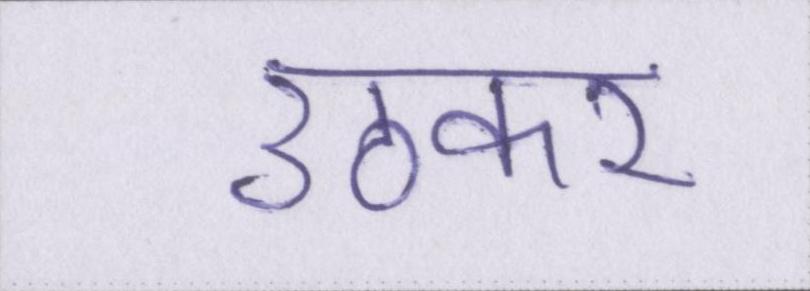 उठकर